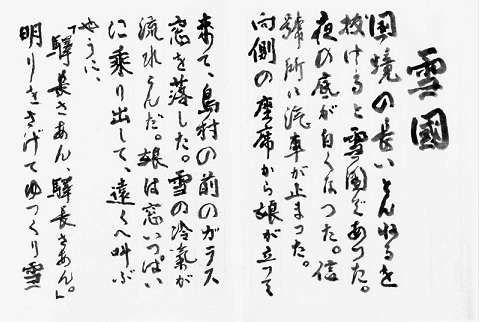 雪國
国境の長いとんねるを
抜けると雪国であつた。
夜の底が白くなつた。信
號所に汽車が止まつた。
向側の座席から娘が立つて
来て、島村の前のガラス
窓を落した。雪の冷気が
流れこんだ。娘は窓いつぱい
に乗り出して、遠くへ叫ぶ
やうに、
「驛長さあん、驛長さあん。」
明りをさげてゆつくり雪